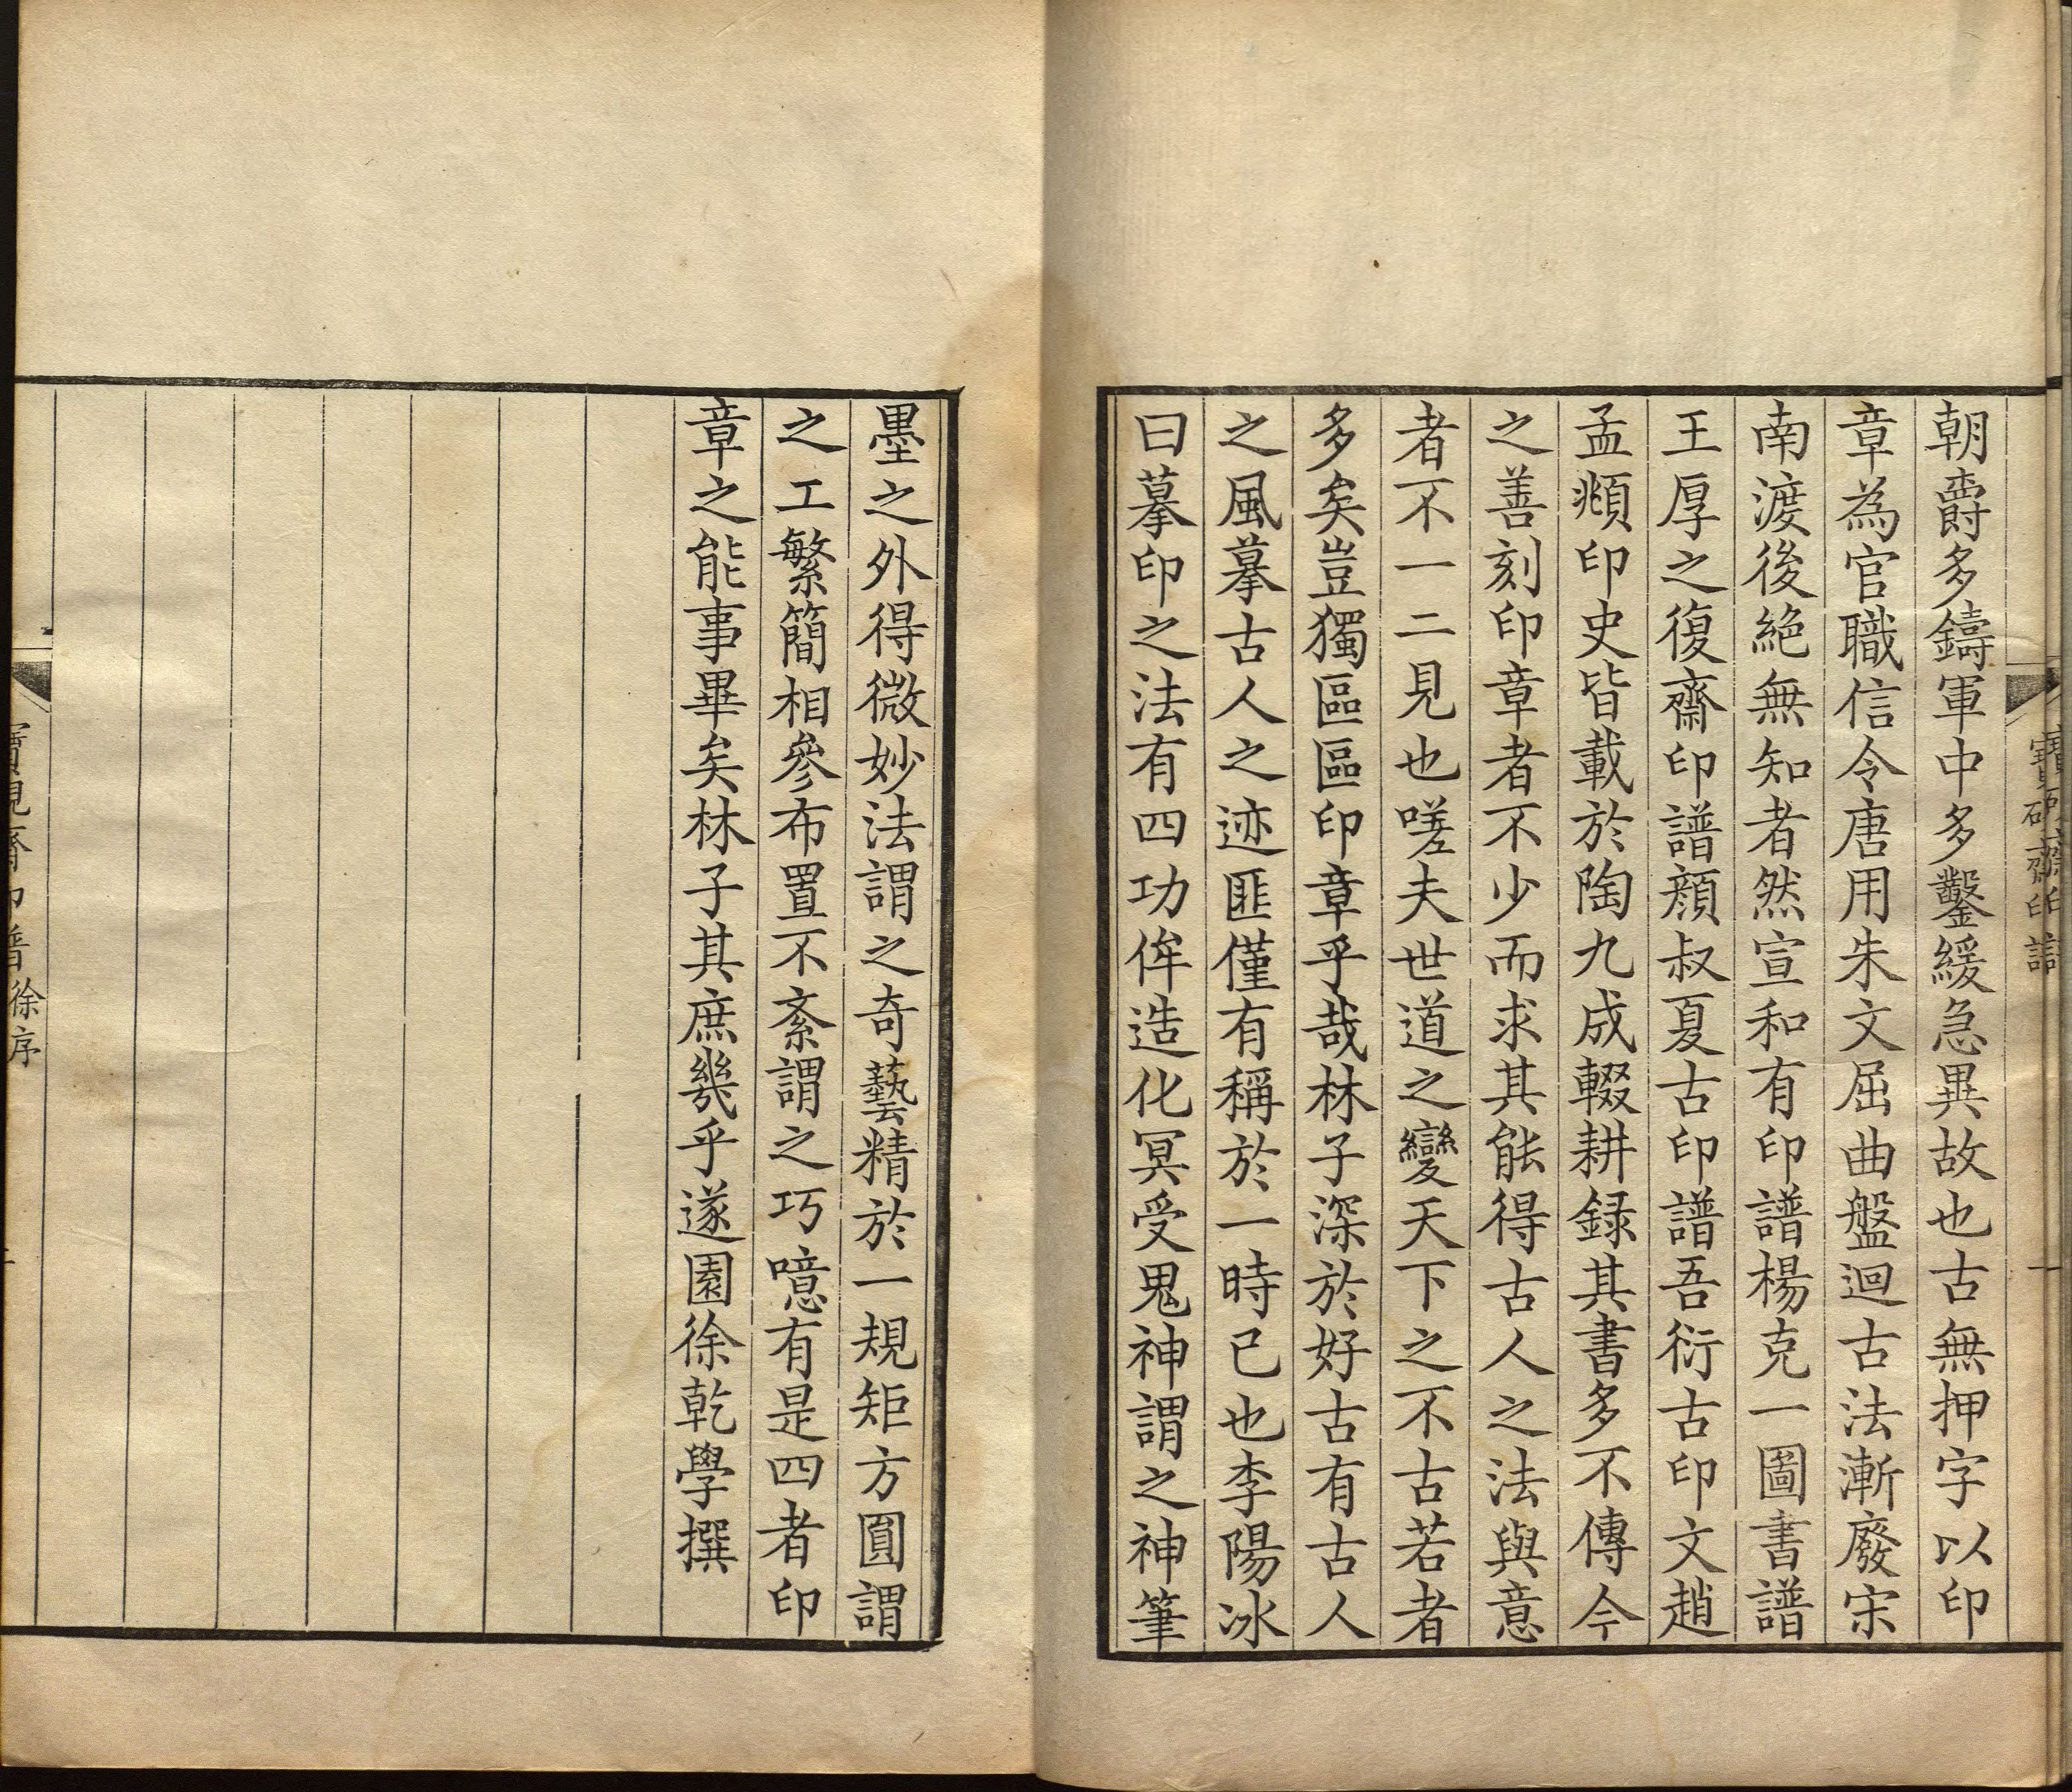 朝爵多鑄軍中多鑿緩急異故也古無押字以印
章為官職信令唐用朱文屈曲盤迴古法漸廢宋
南渡後絕無知者然宣和有印譜楊克一圖書譜
王厚之復齋印譜顏叔夏古印譜吾衍古印文趙
孟頫印史皆載於陶九成輟耕録其書多不傳今
之善刻印章者不少而求其能得古人之法與意
者不一二見也嗟夫世道之變天下之不古若者
多矣豈獨區區印章乎哉林子深於好古有古人
之風摹古人之迹匪僅有稱於一時已也李陽冰
曰摹印之法有四功侔造化冥受鬼神謂之神筆
墨之外得微妙法謂之奇藝精於一規矩方圓謂
之工繁簡相參布置不紊謂之巧噫有是四者印
章之能事畢矣林子其庶幾乎遂園徐乾學撰
寶硯齋印譜 徐序